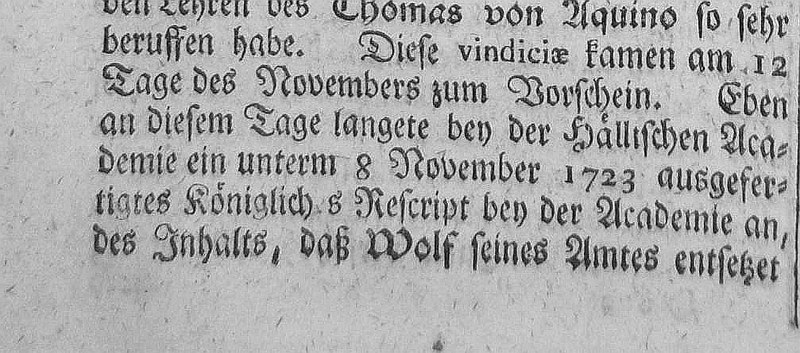 den Lehren des Thomas von Aquino so sehr
beruffen habe. Diese vindiciæ kamen am 12
Tage des Novembers zum Vorschein. Eben
an diesem Tage langete bey der Hällischen Aca-
demie ein unterm 8 November 1723 ausgefer-
tigtes Königlich s Rescript bey der Academie an,
des Inhalts, daß Wolf seines Amtes entsetzet